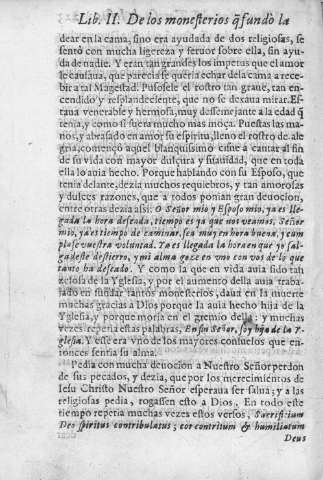 Lib. II. De los monesterios q̃ fundò la
dear en la cama, sino era ayudada de dos religiosas, se
sentò con mucha ligereza y feruor sobre ella, sin ayu-
da de nadie. Y eran tan grandes los impetus que el amor
le causaua, que parecia se queria echar dela cama a rece-
bir a tal Magestad. Pusosele el rostro tan graue, tan en-
cendido y resplandeciente, que no se dexaua mirar. Es-
taua venerable y hermosa, muy dessemejante a la edad q̃
tenia, y como si fuera mucho mas moça. Puestas las ma-
nos, y abrasado en amor su espiritu, lleno el rostro de ale-
gria, començò aquel blanquissimo cisne a cantar al fin
de su vida con mayor dulçura y suauidad, que en toda
ella lo auia hecho. Porque hablando con su Esposo, que
tenia delante, dezia muchos requiebros, y tan amorosas
y dulces razones, que a todos ponian gran deuocion,
entre otras dezia assi: O Señor mio y Esposo mio, ya es lle-
gada la hora deseada, tiempo es ya que nos veamos. Señor
mio, ya es tiempo de caminar, sea muy en hora buena, y cum
plase vuestra voluntad. Ya es llegada la hora en que yo sal-
ga deste destierro, y mi alma goze en vno con vos de lo que
tanto ha deseado. Y como la que en vida auia sido tan
zelosa de la Yglesia, y por el aumento della auia traba-
jado en fundar tantos monesterios, daua en la muerte
muchas gracias a Dios porque la auia hecho hija de la
Yglesia, y porque moria en el gremio della: y muchas
vezes repetia estas palabras, En fin Señor, soy hija de la Y-
glesia. Y esse era vno de los mayores consuelos que en-
tonces sentia su alma.
Pedia con mucha deuocion a Nuestro Señor perdon
de sus pecados, y dezia, que por los merecimientos de
Jesu Christo Nuestro Señor esperaua ser salua; y a las
religiosas pedia, rogassen esto a Dios. En todo este
tiempo repetia muchas vezes estos versos, Sacrificium
Deo spiritus contribulatus; cor contritum & humiliatum
Deus